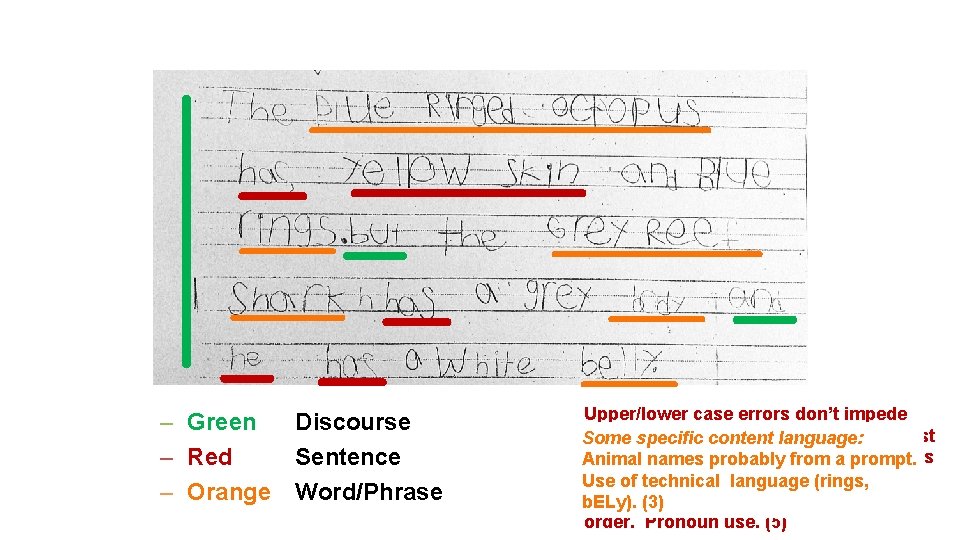 The blue Ringed octopus
has Yellow skin and Blue
rings. but the Grey Reef
Shark has a grey body and
he has a white belly.
– Green Discourse
– Red Sentence
– Orange Word/Phrase
Upper/lower case errors don’t impede
Some specific content language:
Animal names probably from a prompt.
Use of technical language (rings,
bELy). (3)
order. Pronoun use. (5)